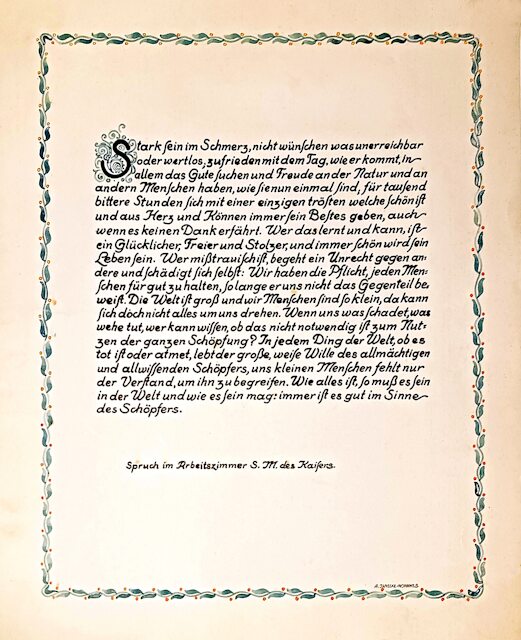 Stark ſein im Schmerz, nicht wünſchen was unerreichbar
oder wertlos, zufrieden mit dem Tag, wie er kommt, in
allem das Gute ſuchen und Freude an der Natur und an
andern Menſchen haben, wie ſie nun einmal ſind, für tauſend
bittere Stunden ſich mit einer einzigen tröſten welche ſchön iſt
und aus Herz und Können immer ſein Beſtes geben, auch
wenn es keinen Dank erfährt. Wer das lernt und kann, iſt
ein Glücklicher, Freier und Stolzer, und immer ſchön wird ſein
Leben ſein. Wer mißtrauiſch iſt, begeht ein Unrecht gegen an-
dere und ſchädigt ſich ſelbſt: Wir haben die Pflicht, jeden Men-
ſchen für gut zu halten, ſo lange er uns nicht das Gegenteil be-
weiſt. Die Welt iſt groß und wir Menſchen ſind ſo klein, da kann
ſich doch nicht alles um uns drehen. Wenn uns was ſchadet, was
wehe tut, wer kann wiſſen, ob das nicht notwendig iſt zum Nut-
zen der ganzen Schöpfung? In jedem Ding der Welt, ob es
tot iſt oder atmet, lebt der große, weiſe Wille des allmächtigen
und allwiſſenden Schöpfers, uns kleinen Menſchen fehlt nur
der Verſtand, um ihn zu begreifen. Wie alles iſt, ſo muß es ſein
in der Welt und wie es ſein mag: immer iſt es gut im Sinne
des Schöpfers.
Spruch im Arbeitszimmer S. M. des Kaiſers.